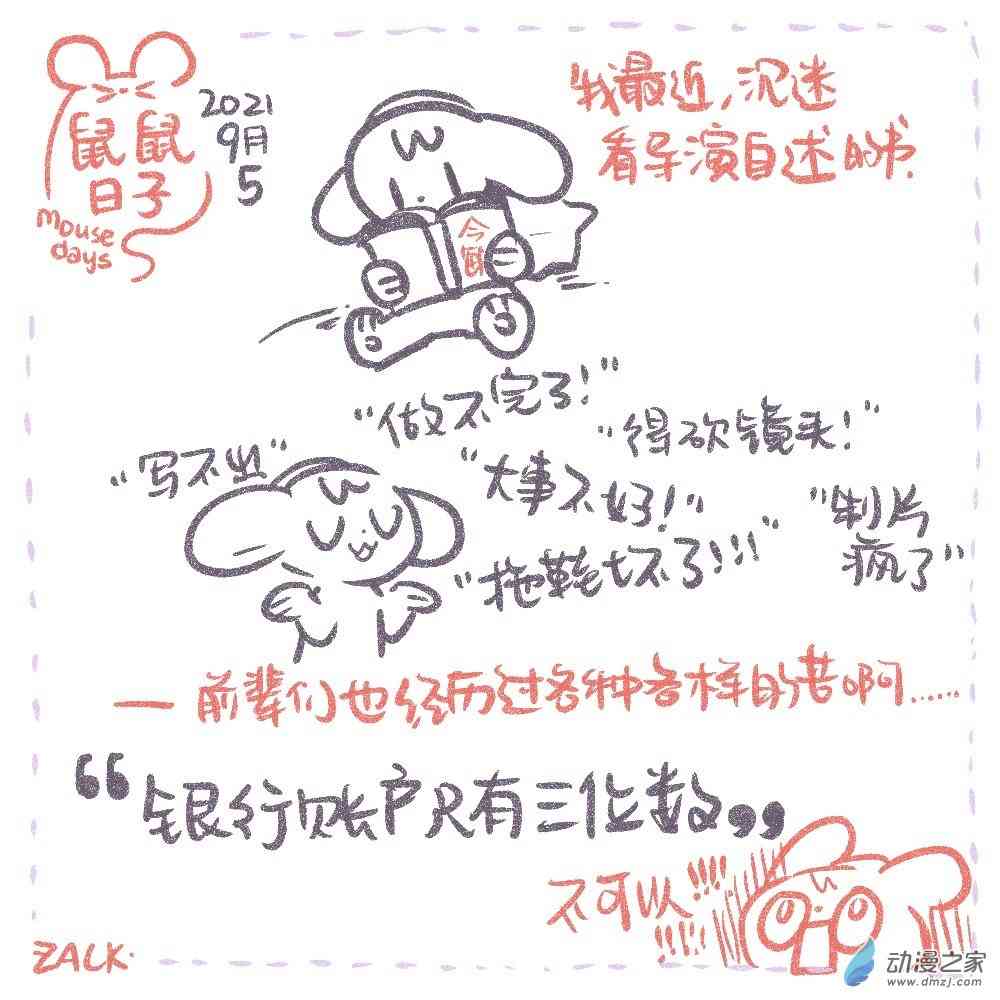 鼠鼠
日子
mouse
days
2021
9月
5
我最近,沉迷
看导演自述的书.
今
敏
"做不完了!"
"得砍镜头!"
"写不出"
"大事不好!"
"制片
疯了"
"拖鞋坏了!!!"
— 前辈们也经历过各种各样的苦啊……
“银行账户只有三位数”
不可以!!!!
ZALK.
动漫之家
www.dmzj.com